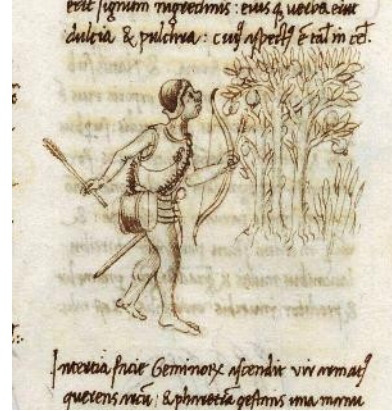 erit signum nigredinis: eius q̃ verba erūt
dulcia & pulchra: cuiꝰ aspectꝰ ē tal̃ in cel̃.
Intertia facie Geminorꝝ ascendit vir armatꝰ
querens arcū: & pharetrā gestans una manu